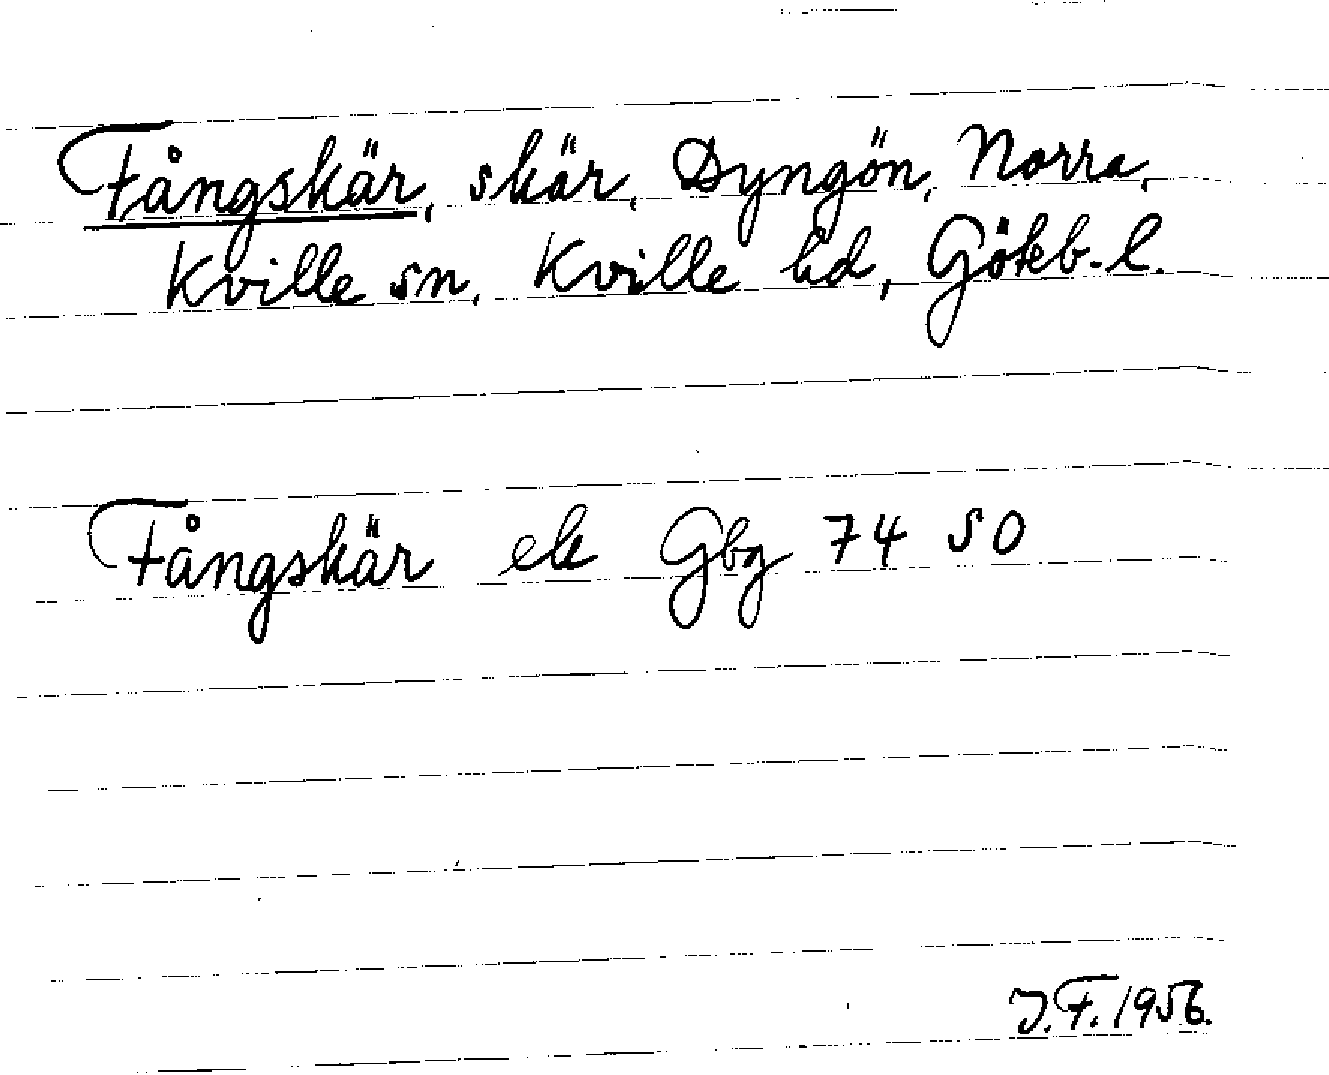 Fångskär, skär, Dyngön, Norra,
Kville sn, Kville hd, Göteb. l.
Fångskär ek Gbg 74 SO
J.F. 1956.